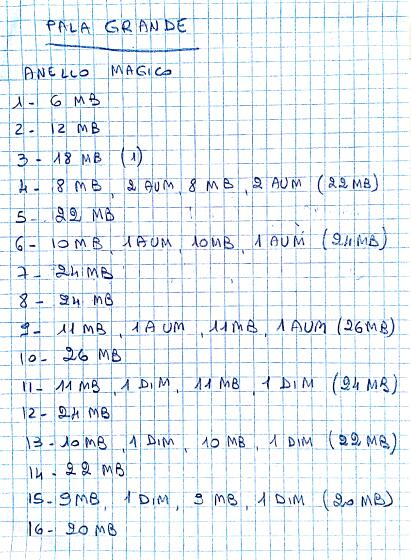 PALA GRANDE
ANELLO MAGICO
1- 6 MB
2- 12 MB
3- 18 MB (1)
4- 8 MB, 2 AUM, 8 MB, 2 AUM (22MB)
5- 22 MB
6- 10MB, 1AUM, 10MB, 1 AUM (24MB)
7- 24MB
8- 24 MB
9- 11MB, 1AUM, 11MB, 1AUM (26MB)
10- 26 MB
11- 11 MB, 1 DIM, 11 MB, 1 DIM (24MB)
12- 24MB
13- 10MB, 1 DIM, 10 MB, 1 DIM (22MB)
14- 22 MB
15- 9MB, 1 DIM, 9 MB, 1 DIM (20MB)
16- 20MB